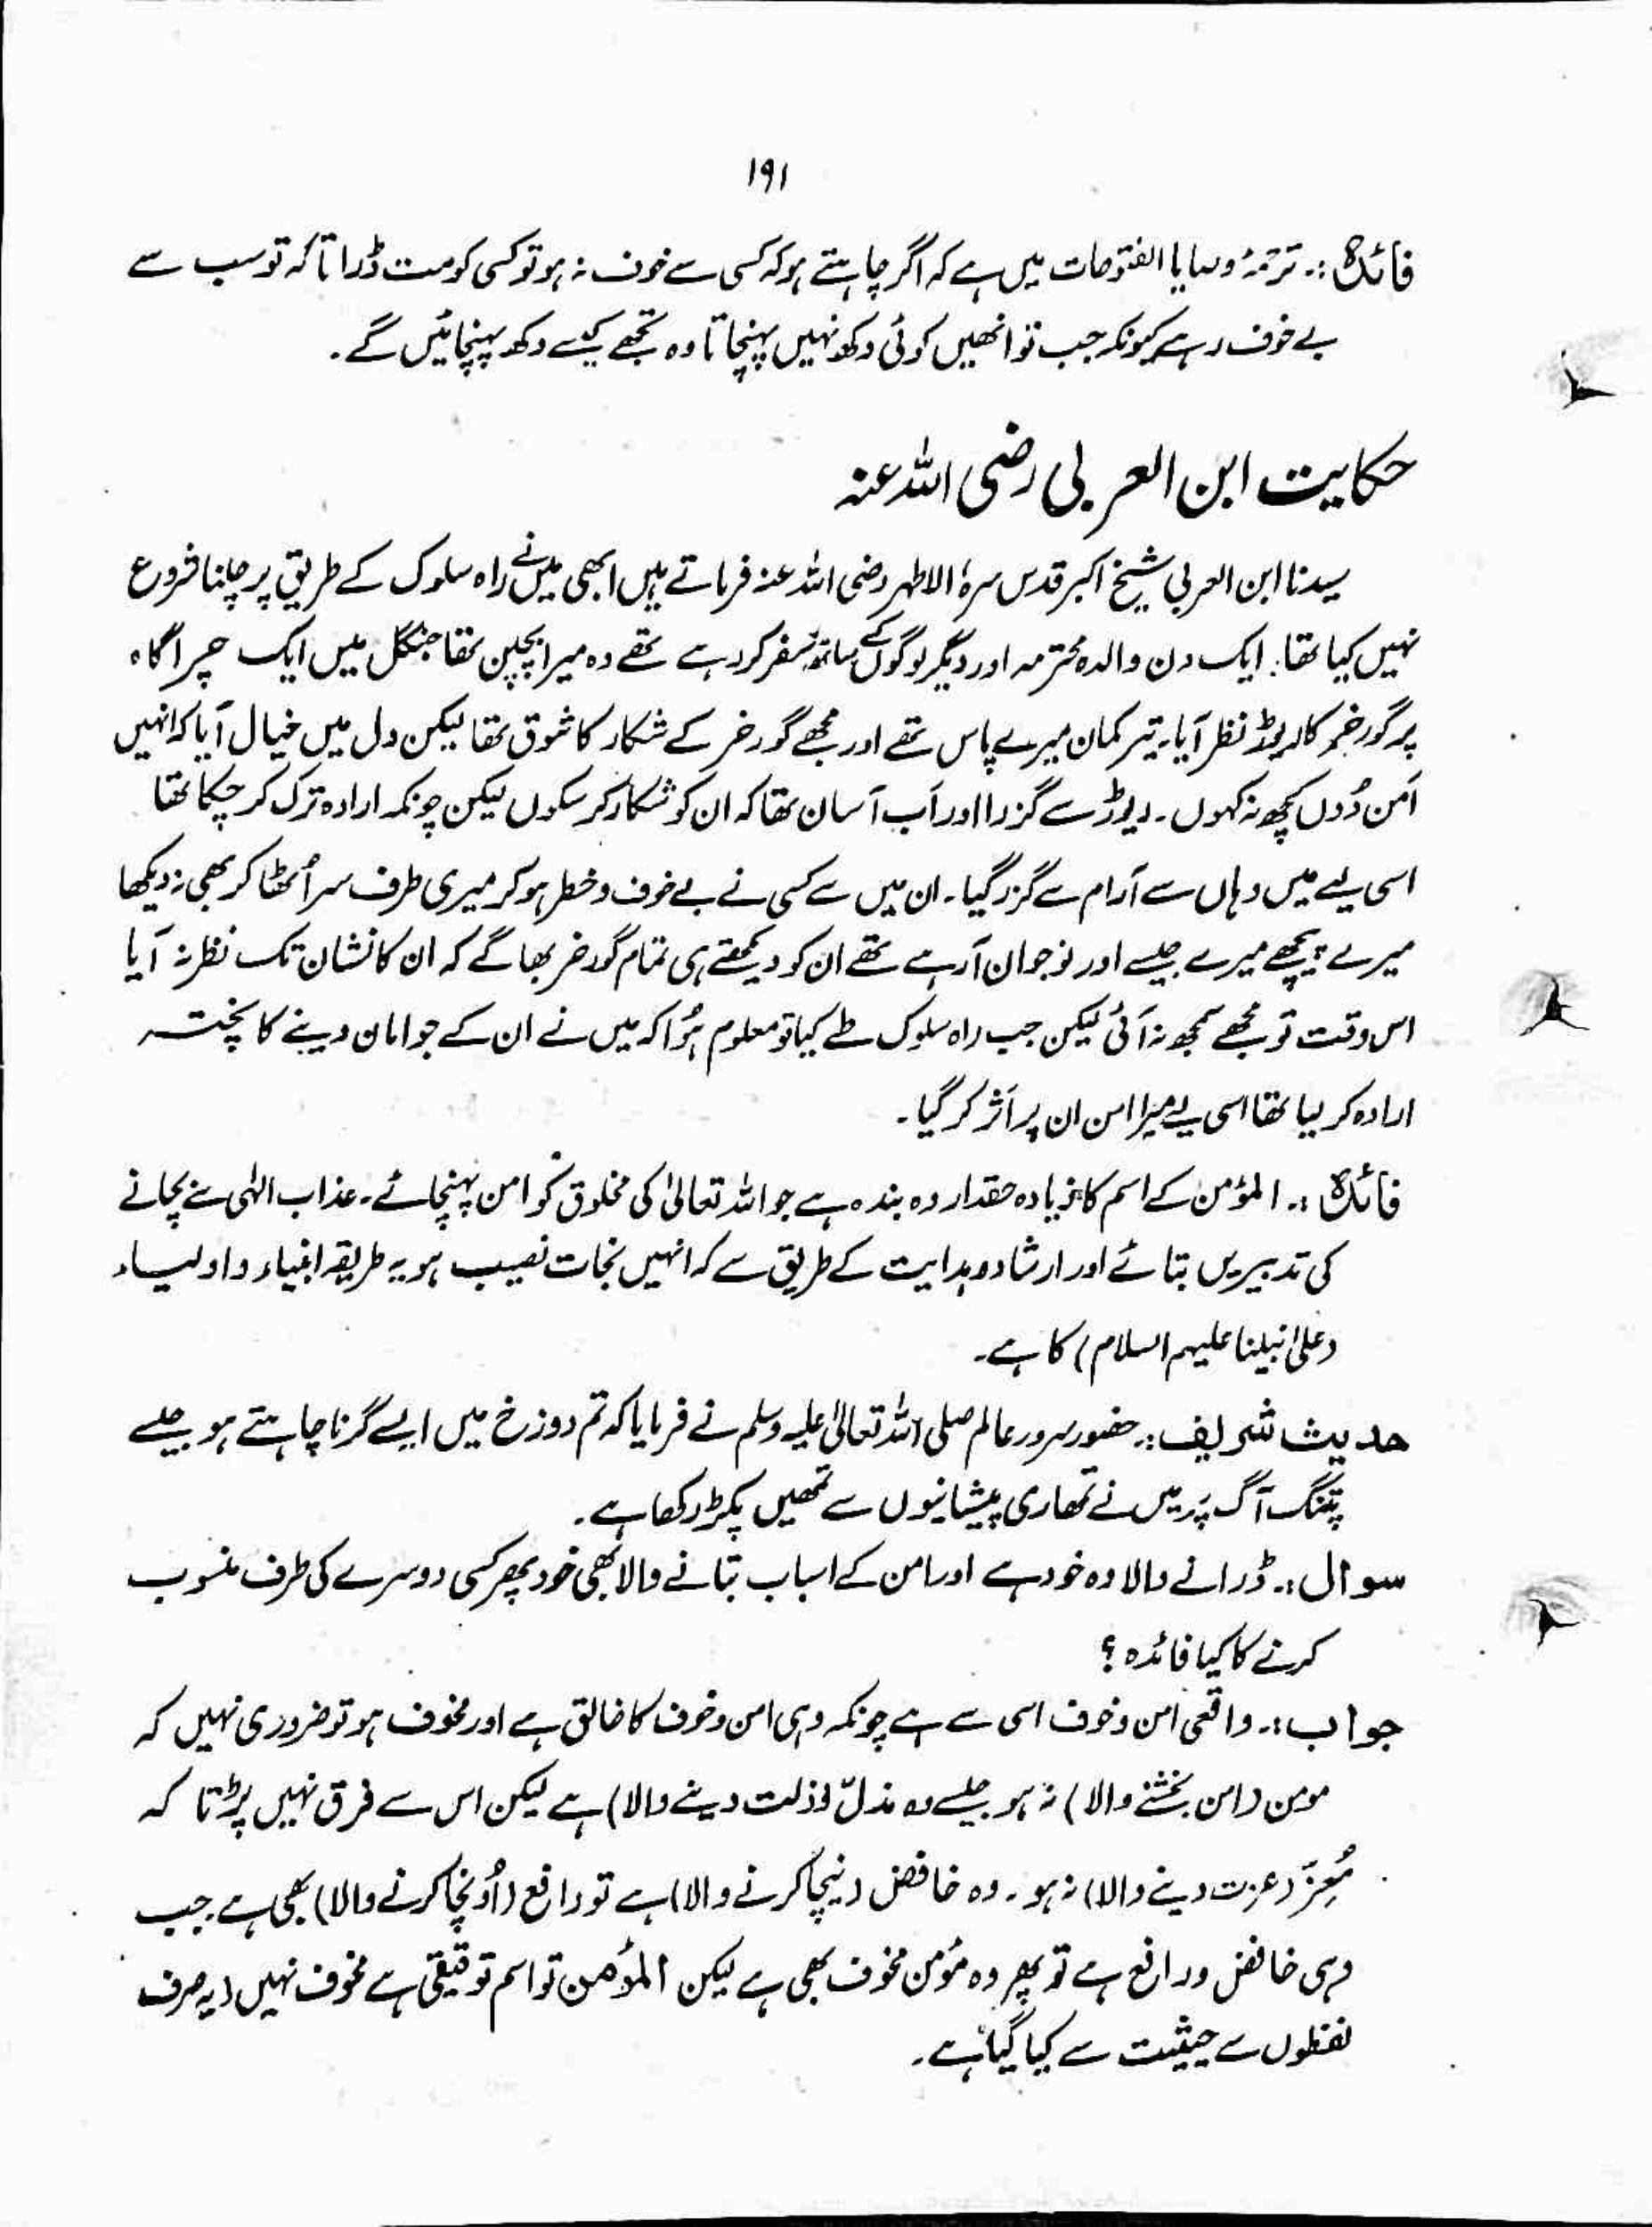 ۱۹۱
فائدہ :۔ ترجمۂ وصایا الفتوحات میں ہے کہ اگر چاہتے ہو کہ کسی سے خوف نہ ہو تو کسی کو مت ڈرا تا کہ تو سب سے
بے خوف رہے کیونکہ جب تو انھیں کوئی دکھ نہیں پہنچاتا وہ تجھے کیسے دکھ پہنچائیں گے۔
حکایت ابن العربی رضی اللہ عنہ
سیدنا ابن العربی شیخ اکبر قدس سرہٗ الاطہر رضی اللہ عنہ فرماتے ہیں ابھی میں نے راہ سلوک کے طریق پر چلنا شروع
نہیں کیا تھا۔ ایک دن والدہ محترمہ اور دیگر لوگوں کے ساتھ سفر کر رہے تھے وہ میرا بچپن تھا جنگل میں ایک چراگاہ
پر گورخر کا ریوڑ نظر آیا۔ تیر کمان میرے پاس تھے اور مجھے گورخر کے شکار کا شوق تھا لیکن دل میں خیال آیا کہ انہیں
اَمن دُوں کچھ نہ کہوں۔ ریوڑ سے گزرا اور اَب آسان تھا کہ ان کو شکار کر سکوں لیکن چونکہ ارادہ ترک کر چکا تھا
اسی لیے میں وہاں سے آرام سے گزر گیا۔ ان میں سے کسی نے بے خوف و خطر ہو کر میری طرف سر اُٹھا کر بھی نہ دیکھا
میرے پیچھے میرے جیسے اور نوجوان آ رہے تھے ان کو دیکھتے ہی تمام گورخر بھاگے کہ ان کا نشان تک نظر نہ آیا
اس وقت تو مجھے سمجھ نہ آئی لیکن جب راہ سلوک طے کیا تو معلوم ہُوا کہ میں نے ان کے جو امان دینے کا پختہ
ارادہ کر لیا تھا اسی لیے میرا امن ان پر اَثر کر گیا۔
فائدہ :۔ المؤمن کے اسم کا زیادہ حقدار وہ بندہ ہے جو اللہ تعالیٰ کی مخلوق کو امن پہنچائے۔ عذاب الٰہی سے بچانے
کی تدبیریں بتائے اور ارشاد و ہدایت کے طریق سے کہ انہیں نجات نصیب ہو یہ طریقہ انبیاء و اولیاء
(علیٰ نبینا علیہم السلام) کا ہے۔
حدیث شریف :۔ حضور سرور عالم صلی اللہ تعالیٰ علیہ وسلم نے فرمایا کہ تم دوزخ میں ایسے گرنا چاہتے ہو جیسے
پتنگ آگ پَر میں نے تمھاری پیشانیوں سے تمھیں پکڑ رکھا ہے۔
سوال :۔ ڈرانے والا وہ خود ہے اور امن کے اسباب بتانے والا بھی خود پھر کسی دوسرے کی طرف منسوب
کرنے کا کیا فائدہ ؟
جواب :۔ واقعی امن و خوف اسی سے ہے چونکہ وہی امن و خوف کا خالق ہے اور مخوف ہو تو ضروری نہیں کہ
مومن (امن بخشنے والا) نہ ہو جیسے وہ مذلّ (ذلت دینے والا) ہے لیکن اس سے فرق نہیں پڑتا کہ
مُعِزّ (عزت دینے والا) نہ ہو۔ وہ خافض (نیچا کرنے والا) ہے تو رافع (اُونچا کرنے والا) بھی ہے جب
وہی خافض و رافع ہے تو پھر وہ مؤمن مخوف بھی ہے لیکن المؤمن تو اسم توقیفی ہے مخوف نہیں (یہ صرف
لفظوں سے حیثیت سے کیا گیا ہے۔